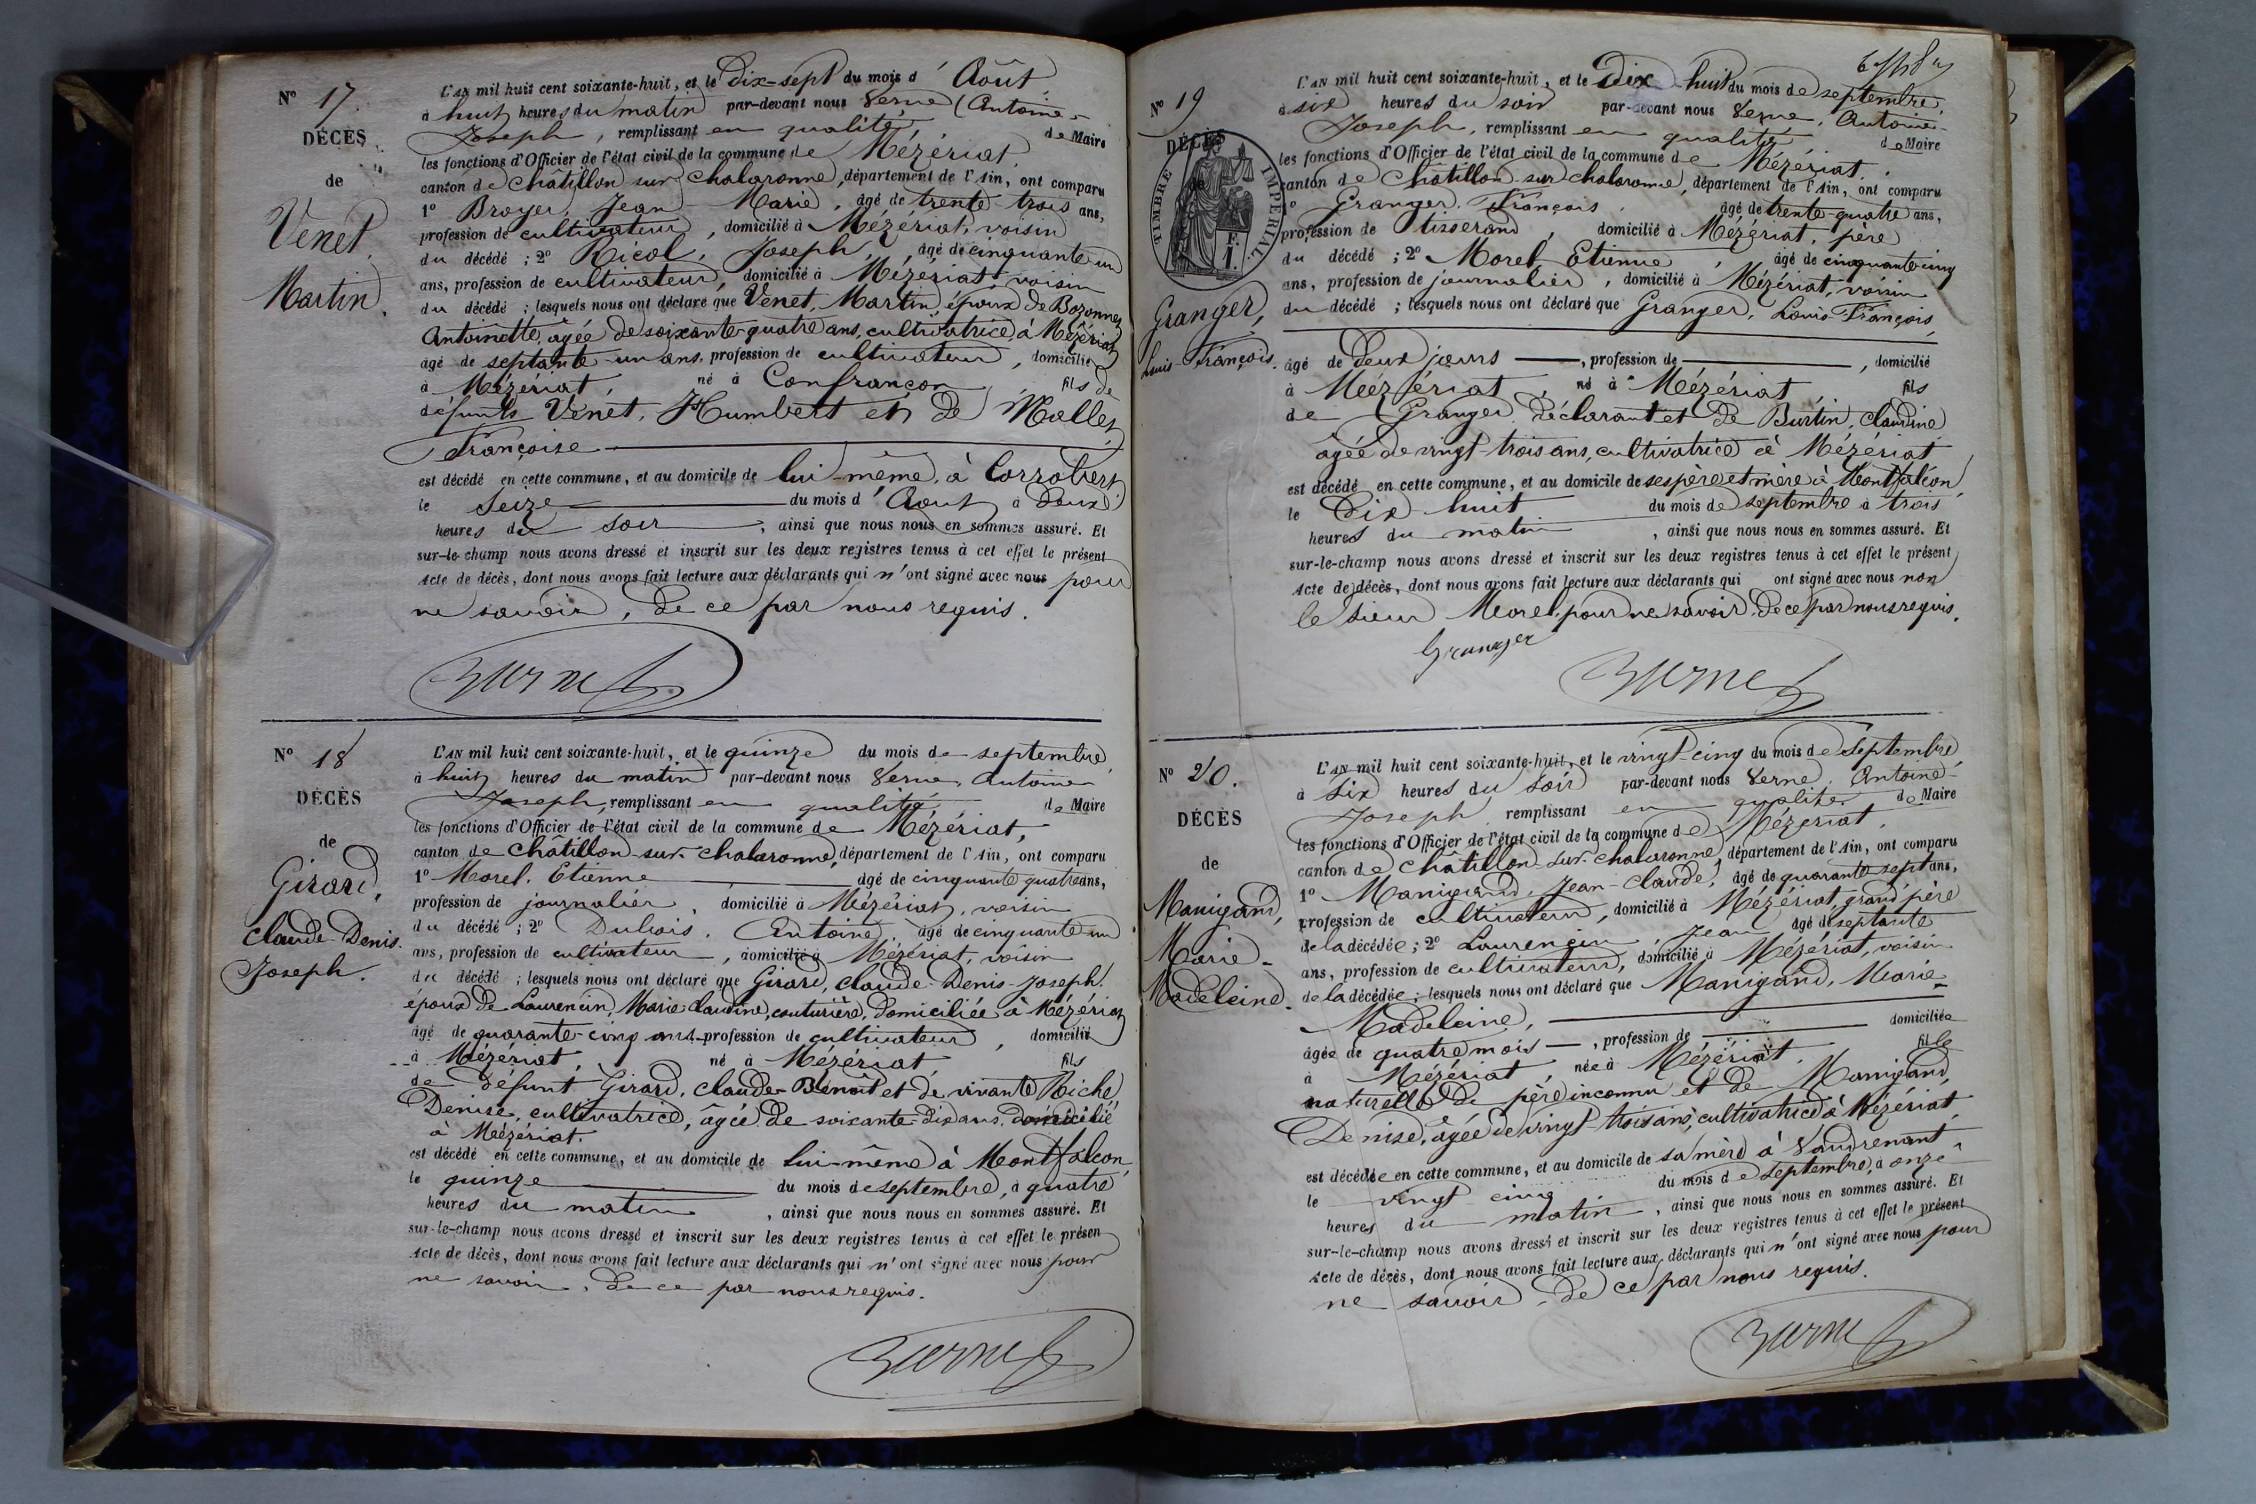 N° 17.
DÉCÈS
de
Venet,
Martin.
L'AN mil huit cent soixante-huit, et le Dix-sept du mois d'Août,
à huit heures du matin par-devant nous Verne, Antoine-
Joseph, remplissant en qualité de Maire
les fonctions d'Officier de l'état civil de la commune de Mézériat,
canton de Châtillon sur Chalaronne, département de l'Ain, ont comparu
1° Broyer, Jean-Marie, âgé de trente-trois ans,
profession de cultivateur, domicilié à Mézériat, voisin
du décédé ; 2° Ricol, Joseph, âgé de cinquante un
ans, profession de cultivateur, domicilié à Mézériat, voisin
du décédé ; lesquels nous ont déclaré que Venet, Martin, époux de Bozonnet
Antoinette, agée de soixante-quatre ans, cultivatrice, à Mézériat
âgé de septante-un ans, profession de cultivateur, domicilié
à Mézériat, né à Confrançon, fils de
défunts Venet, Humbert et de Mallet,
Françoise
est décédé en cette commune, et au domicile de lui-même, à Corrobert,
le Seize du mois d'Août à deux
heures du soir, ainsi que nous nous en sommes assuré. Et
sur-le-champ nous avons dressé et inscrit sur les deux registres tenus à cet effet le présent
Acte de décès, dont nous avons fait lecture aux déclarants qui n'ont signé avec nous pour
ne savoir, de ce par nous requis.
Verne
N° 18
DÉCÈS
de
Girard,
Claude-Denis-
Joseph.
L'AN mil huit cent soixante-huit, et le quinze du mois de septembre,
à huit heures du matin par-devant nous Verne, Antoine-
Joseph, remplissant en qualité de Maire
les fonctions d'Officier de l'état civil de la commune de Mézériat,
canton de Châtillon-sur-Chalaronne, département de l'Ain, ont comparu
1° Morel, Etienne âgé de cinquante quatre ans,
profession de journalier, domicilié à Mézériat, voisin
du décédé ; 2° Dubois, Antoine, âgé de cinquante un
ans, profession de cultivateur, domicilié à Mézériat, voisin
du décédé ; lesquels nous ont déclaré que Girard, Claude-Denis-Joseph,
époux de Laurencin, Marie-Claudine, couturière, domiciliée à Mézériat
âgé de quarante-cinq ans, profession de cultivateur, domicilié
à Mézériat, né à Mézériat, fils
de défunt Girard, Claude-Benoît et de vivante Riche,
Denise, cultivatrice, âgée de soixante-dix ans, domicilié
à Mézériat.
est décédé en cette commune, et au domicile de lui-même à Montfalcon,
le quinze du mois de septembre, à quatre
heures du matin, ainsi que nous nous en sommes assuré. Et
sur-le-champ nous avons dressé et inscrit sur les deux registres tenus à cet effet le présen
Acte de décès, dont nous avons fait lecture aux déclarants qui n'ont signé avec nous pour
ne savoir, de ce par nous requis.
Verne
N° 19
DÉCÈS
de
TIMBRE IMPÉRIAL
F.
1.
Granger,
Louis-François.
L'AN mil huit cent soixante-huit, et le Dix-huit du mois de septembre,
à six heures du soir par-devant nous Verne, Antoine-
Joseph, remplissant en qualité de Maire
les fonctions d'Officier de l'état civil de la commune de Mézériat,
canton de Châtillon-sur-Chalaronne, département de l'Ain, ont comparu
1° Granger, François, âgé de trente-quatre ans,
profession de tisserand, domicilié à Mézériat, père
du décédé ; 2° Morel, Etienne, âgé de cinquante cinq
ans, profession de journalier, domicilié à Mézériat, voisin
du décédé ; lesquels nous ont déclaré que Granger, Louis-François,
âgé de deux jours, profession de, domicilié
à Mézériat, né à Mézériat, fils
de Granger, déclarant et de Burtin, Claudine
âgée de vingt-trois ans, cultivatrice à Mézériat
est décédé en cette commune, et au domicile de ses père et mère à Montfalcon,
le Dix-huit du mois de septembre à trois
heures du matin, ainsi que nous nous en sommes assuré. Et
sur-le-champ nous avons dressé et inscrit sur les deux registres tenus à cet effet le présent
Acte de décès, dont nous avons fait lecture aux déclarants qui ont signé avec nous non
le sieur Morel, pour ne savoir, de ce par nous requis.
Granger
Verne
N° 20.
DÉCÈS
de
Manigand,
Marie-
Madeleine.
L'AN mil huit cent soixante-huit, et le vingt-cinq du mois de Septembre,
à six heures du soir par-devant nous Verne, Antoine-
Joseph, remplissant en qualité de Maire
les fonctions d'Officier de l'état civil de la commune de Mézériat,
canton de Châtillon-sur-Chalaronne, département de l'Ain, ont comparu
1° Manigand, Jean-Claude, âgé de quarante sept ans,
profession de cultivateur, domicilié à Mézériat, grand'père
de la décédée ; 2° Laurencin, Jean, âgé de septante
ans, profession de cultivateur, domicilié à Mézériat, voisin
de la décédée ; lesquels nous ont déclaré que Manigand, Marie-
Madeleine,
âgée de quatre mois, profession de domiciliée
à Mézériat, née à Mézériat, fille
naturelle de père inconnu et de Manigand,
Denise, âgée de vingt-trois ans, cultivatrice à Mézériat,
est décédée en cette commune, et au domicile de sa mère à Vaudrenant,
le vingt-cinq du mois de septembre, à onze
heures du matin, ainsi que nous nous en sommes assuré. Et
sur-le-champ nous avons dressé et inscrit sur les deux registres tenus à cet effet le présent
Acte de décès, dont nous avons fait lecture aux déclarants qui n'ont signé avec nous pour
ne savoir, de ce par nous requis.
Verne